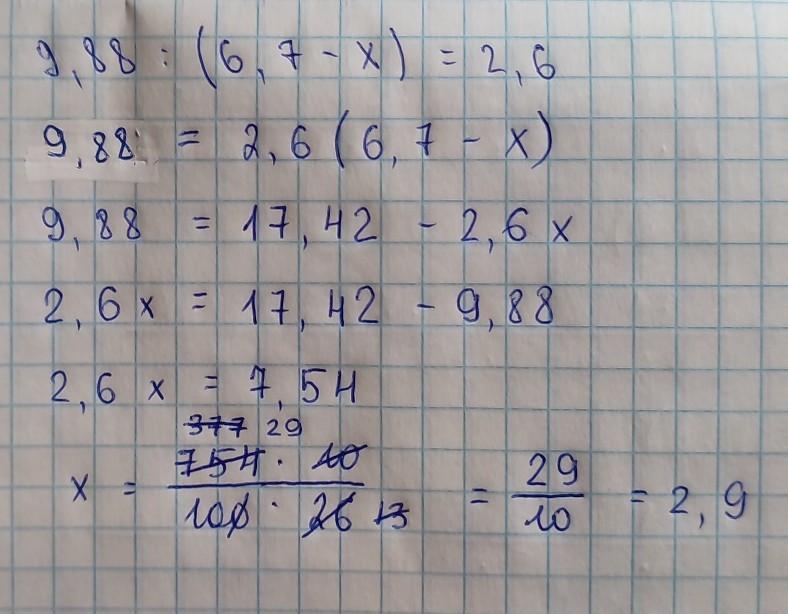 9,88 : (6,7 - x) = 2,6
9,88 = 2,6 (6,7 - x)
9,88 = 17,42 - 2,6 x
2,6 x = 17,42 - 9,88
2,6 x = 7,54
377 29
x = 754 · 10 / 100 · 26 13 = 29/10 = 2,9